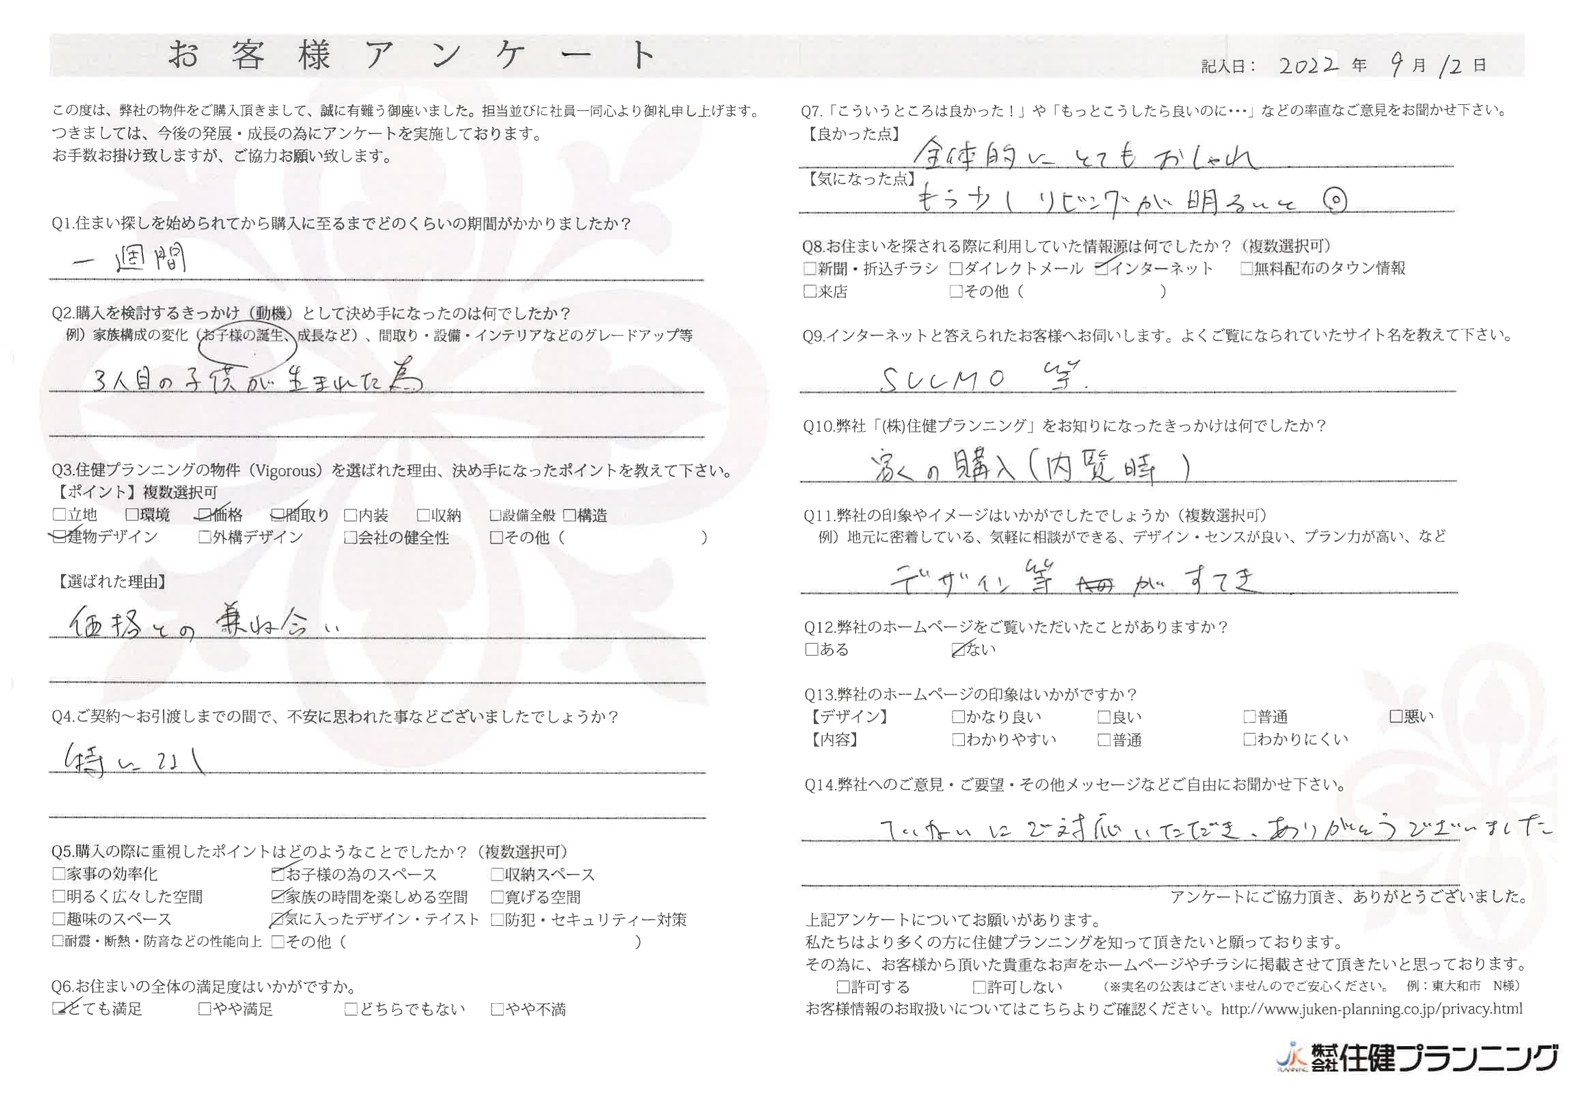 お客様アンケート
記入日： 2022 年 9 月 12 日
この度は、弊社の物件をご購入頂きまして、誠に有難う御座いました。担当並びに社員一同心より御礼申し上げます。
つきましては、今後の発展・成長の為にアンケートを実施しております。
お手数お掛け致しますが、ご協力お願い致します。
Q1.住まい探しを始められてから購入に至るまでどのくらいの期間がかかりましたか？
一週間
Q2.購入を検討するきっかけ（動機）として決め手になったのは何でしたか？
例）家族構成の変化（お子様の誕生、成長など）、間取り・設備・インテリアなどのグレードアップ等
3人目の子供が生まれた為
Q3.住健プランニングの物件（Vigorous）を選ばれた理由、決め手になったポイントを教えて下さい。
【ポイント】複数選択可
□立地 □環境 ☑価格 ☑間取り □内装 □収納 □設備全般 □構造
☑建物デザイン □外構デザイン □会社の健全性 □その他（ ）
【選ばれた理由】
価格との兼ね合い
Q4.ご契約～お引渡しまでの間で、不安に思われた事などございましたでしょうか？
特になし
Q5.購入の際に重視したポイントはどのようなことでしたか？（複数選択可）
□家事の効率化 ☑お子様の為のスペース □収納スペース
□明るく広々した空間 ☑家族の時間を楽しめる空間 □寛げる空間
□趣味のスペース ☑気に入ったデザイン・テイスト □防犯・セキュリティー対策
□耐震・断熱・防音などの性能向上 □その他（ ）
Q6.お住まいの全体の満足度はいかがですか。
☑とても満足 □やや満足 □どちらでもない □やや不満
Q7.「こういうところは良かった！」や「もっとこうしたら良いのに・・・」などの率直なご意見をお聞かせ下さい。
【良かった点】
全体的に とても おしゃれ
【気になった点】
もう少し リビングが 明るいと ◎
Q8.お住まいを探される際に利用していた情報源は何でしたか？（複数選択可）
□新聞・折込チラシ □ダイレクトメール ☑インターネット □無料配布のタウン情報
□来店 □その他（ ）
Q9.インターネットと答えられたお客様へお伺いします。よくご覧になられていたサイト名を教えて下さい。
SUUMO 等.
Q10.弊社「(株)住健プランニング」をお知りになったきっかけは何でしたか？
の購入(内覧時)
Q11.弊社の印象やイメージはいかがでしたでしょうか（複数選択可）
例）地元に密着している、気軽に相談ができる、デザイン・センスが良い、プラン力が高い、など
デザイン等 が すてき
Q12.弊社のホームページをご覧いただいたことがありますか？
□ある ☑ない
Q13.弊社のホームページの印象はいかがですか？
【デザイン】 □かなり良い □良い □普通 □悪い
【内容】 □わかりやすい □普通 □わかりにくい
Q14.弊社へのご意見・ご要望・その他メッセージなどご自由にお聞かせ下さい。
ていねいにご対応いただき、ありがとうございました
アンケートにご協力頂き、ありがとうございました。
上記アンケートについてお願いがあります。
私たちはより多くの方に住健プランニングを知って頂きたいと願っております。
その為に、お客様から頂いた貴重なお声をホームページやチラシに掲載させて頂きたいと思っております。
□許可する □許可しない （※実名の公表はございませんのでご安心ください。 例：東大和市 N様）
お客様情報のお取扱いについてはこちらよりご確認ください。http://www.juken-planning.co.jp/privacy.html
JK PLANNING 株式会社住健プランニング